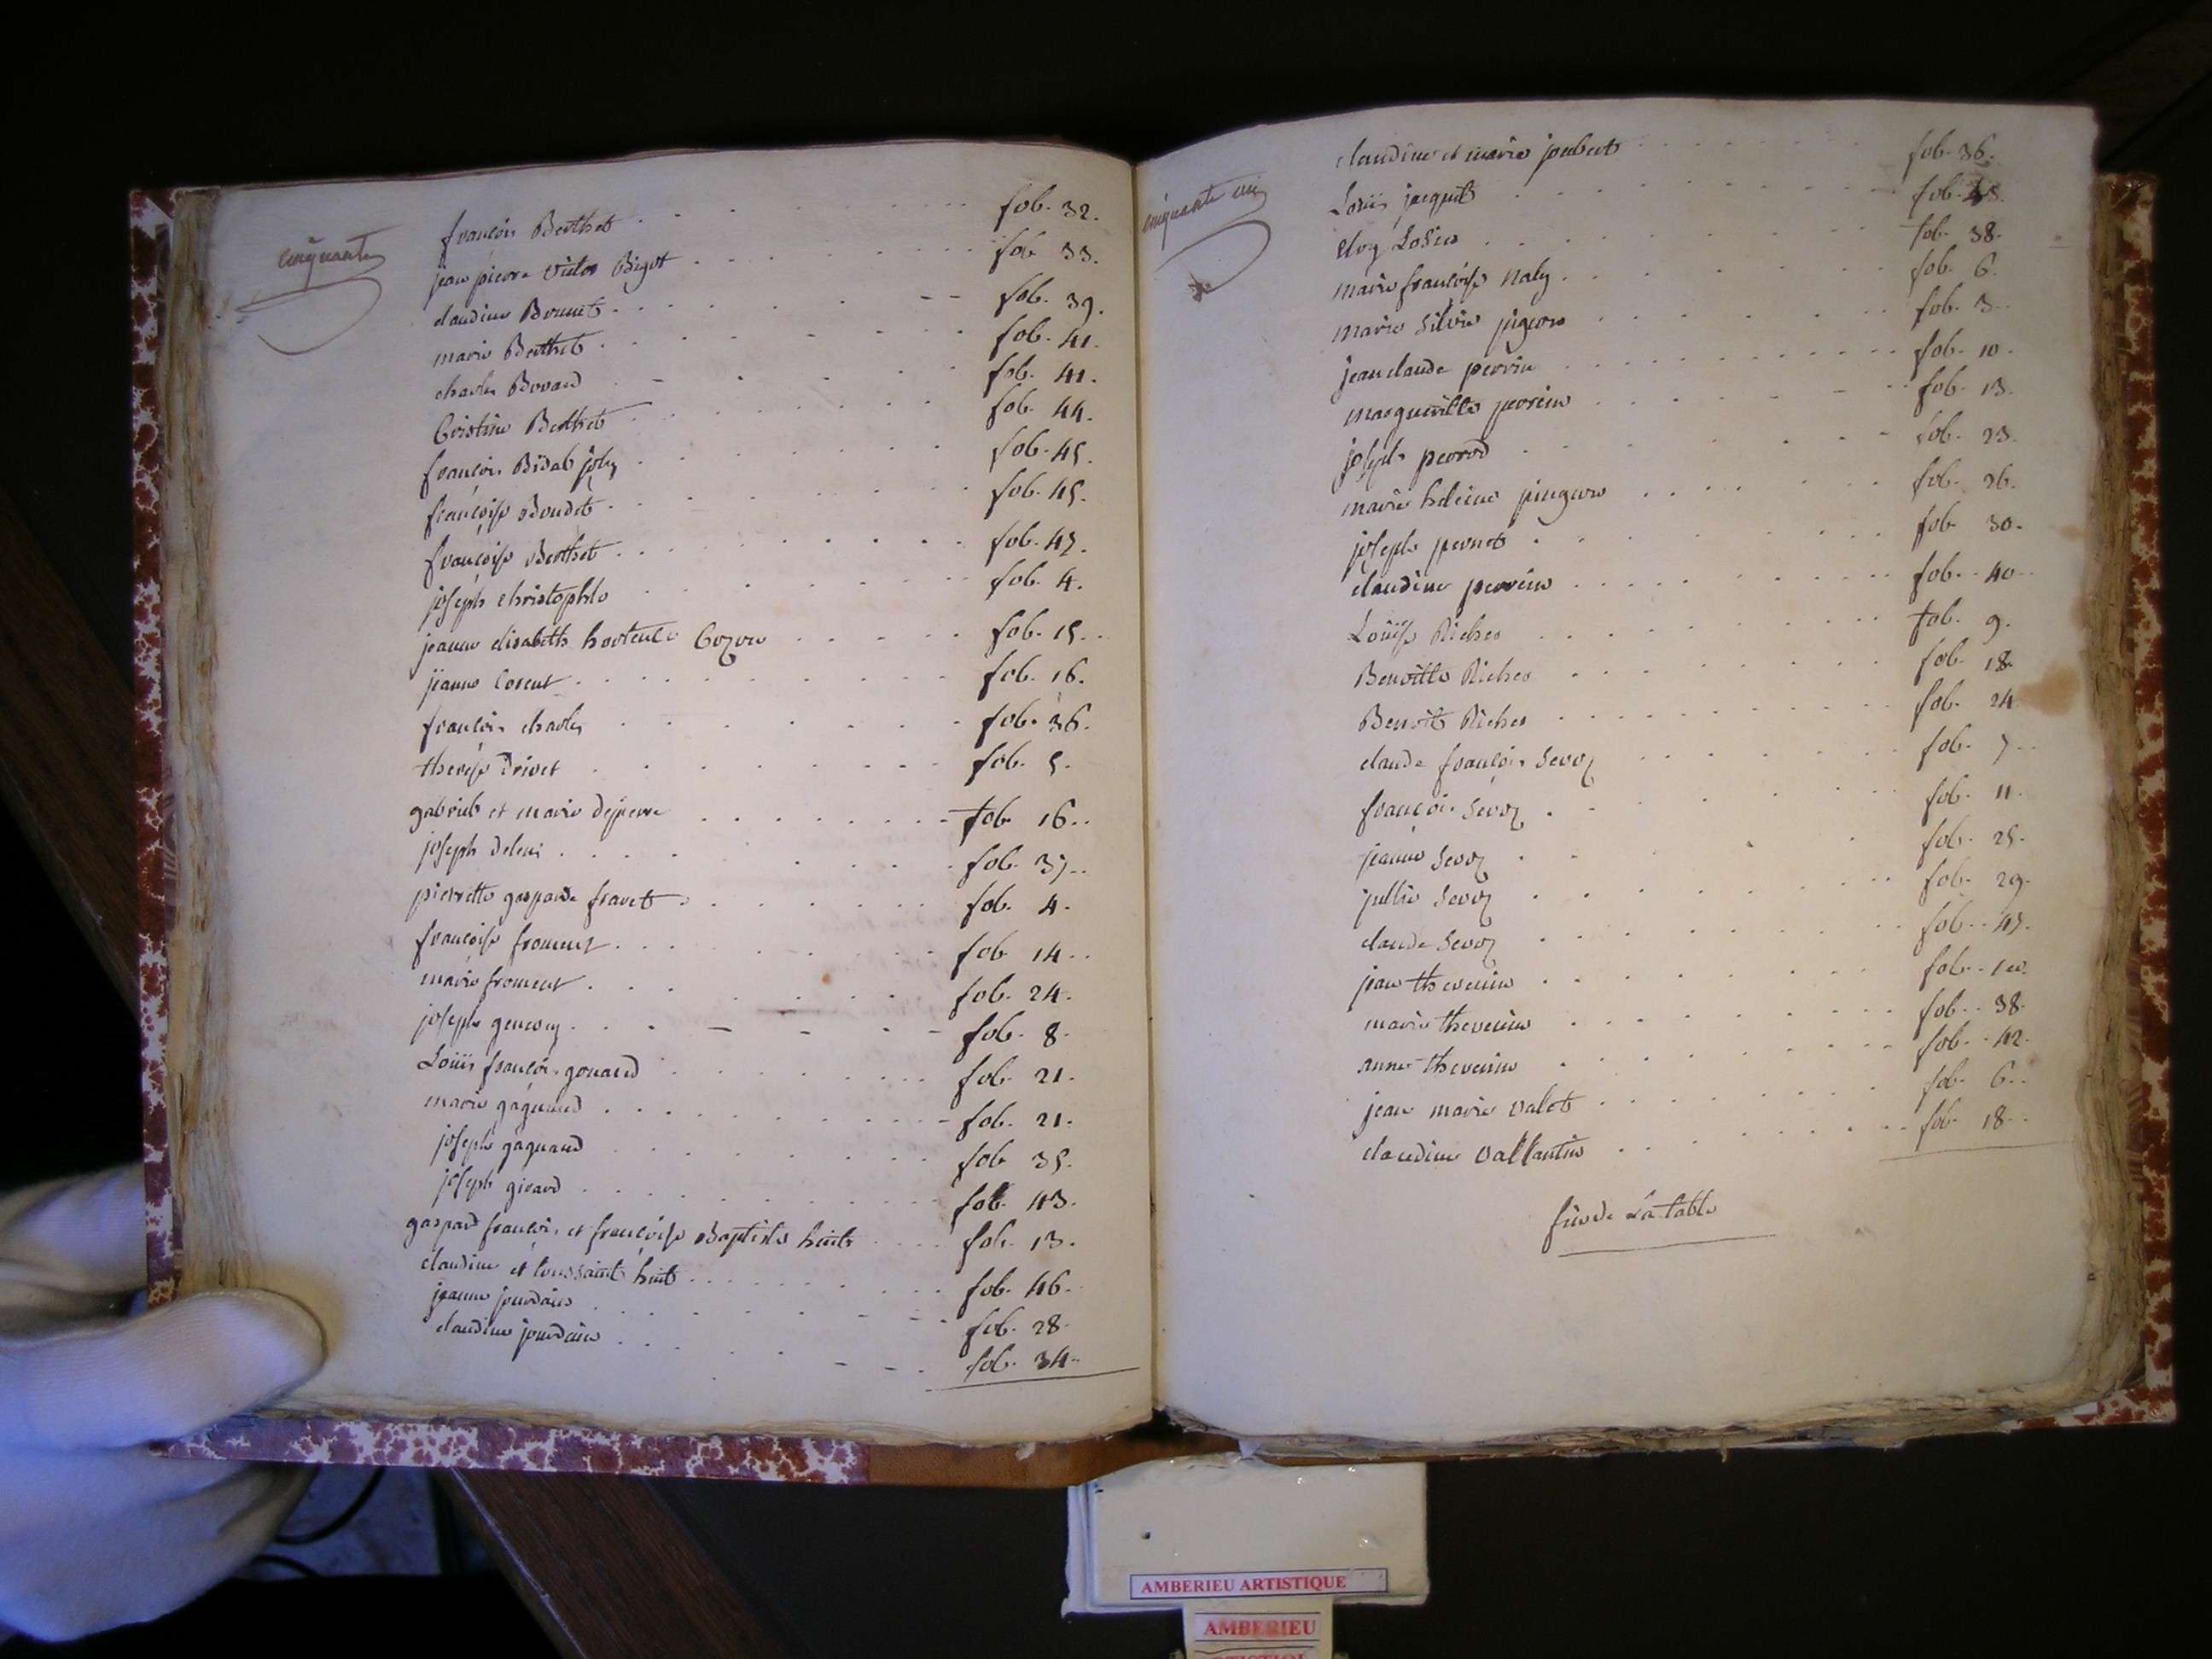 cinquante
françois Berthet . . . . . . . . fol. 32.
jean pierre victor Bigot . . . . . . . fol. 33.
claudine Brunet . . . . . . . . fol. 39.
marie Berthet . . . . . . . . fol. 41.
charles Bovard . . . . . . fol. 41.
Cristine Berthet . . . . . . . . fol. 44.
françois Bidal joly . . . . . . . fol. 45.
françoise Boudet . . . . . . . . fol. 45.
françoise Berthet . . . . . . . . fol. 47.
joseph christophle . . . . . . . fol. 4.
jeanne elisabeth hortense Cozon . . . . . fol. 15.
jeanne . . . . . . . . . fol. 16.
françois charles . . . . . . . fol. 36.
therèse Drivet . . . . . . . . fol. 5.
gabriel et marie . . . . . . . . fol. 16.
joseph . . . . . . . . . fol. 37.
pierrette gasparde fravet . . . . . . . fol. 4.
françoise froment . . . . . . . . fol. 14.
marie froment . . . . . . . . fol. 24.
joseph . . . . . . . fol. 8.
Louis françois gonard . . . . . . . . fol. 21.
marie gagnard . . . . . . . . fol. 21.
joseph gagnard . . . . . . . . fol. 35.
joseph girard . . . . . . . . fol. 43.
gaspard françois et françoise Baptiste huit . . . . fol. 13.
claudine et toussaint huit . . . . . . . fol. 46.
jeanne jourdain . . . . . . . . fol. 28.
claudine jourdain . . . . . . . fol. 34.
cinquante un
claudine et marie joubert . . . . . . . fol. 36.
Louis jacquet . . . . . . . . fol.
. . . . . . . . fol. 38.
marie françoise naly . . . . . . . . fol. 6.
marie silvie pigeon . . . . . . fol. 3.
jean claude perrin . . . . . . . . fol. 10.
margueritte perrin . . . . . . . fol. 13.
joseph perrod . . . . . . . fol. 23.
marie heleine pingeon . . . . . . . fol. 26.
joseph pernet . . . . . . . . fol. 30.
claudine perrin . . . . . . . . fol. 40.
Louise Richer . . . . . . . . fol. 9.
Benoitte Richer . . . . . . . . fol. 18.
Benoit Richer . . . . . . . . fol. 24.
claude françois Sevoz . . . . . . . fol. 7.
françois Sevoz . . . . . . . fol. 11.
jeanne Sevoz . . . . fol. 25.
jullie Sevoz . . . . . . . . fol. 29.
claude Sevoz . . . . . . . . fol. 47.
jean thevenin . . . . . . . fol. 10.
marie thevenin . . . . . . . . fol. 38.
anne thevenin . . . . . . . . fol. 42.
jean marie valet . . . . . . . fol. 6.
claudine vallantin . . . . . . . fol. 18.
fin de La table
AMBERIEU ARTISTIQUE
AMBERIEU